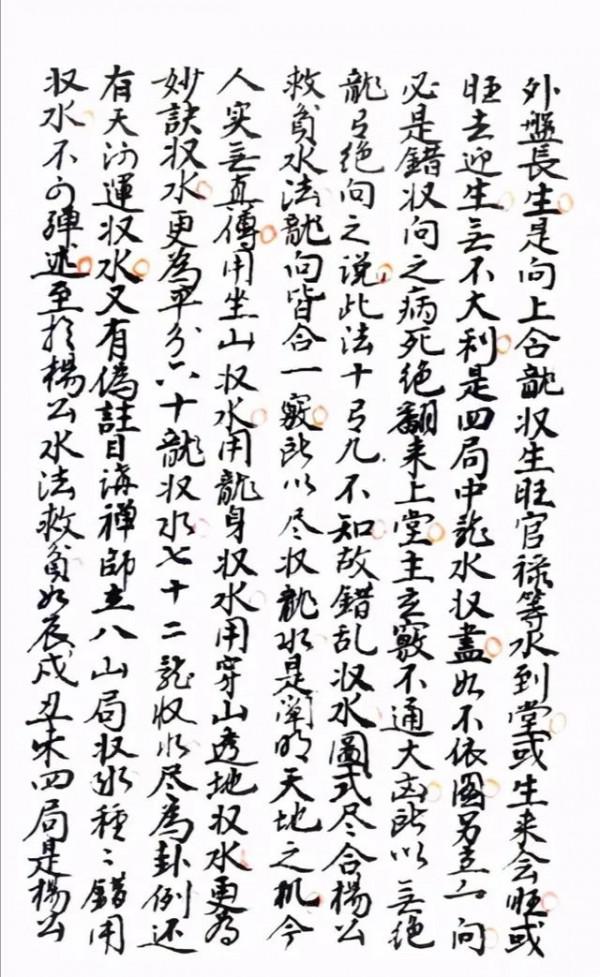 外盤長生是向上合龍収生旺官禄等水到堂或生来会旺或
旺去迎生無不大利是四局中龍水収盡如不依圖另立一向
必是錯収向之病死絶翻来上堂主立竅不通大凶所以無絶
龍有絶向之説此法十有九不知故錯乱収水圖式尽合楊公
救貧水法龍向皆合一竅所以尽収龍水是闡明天地之机今
人实無真傳用坐山収水用龍身収水用穿山透地収水更為
妙訣収水更為平分六十龍収水七十二龍収水尽為卦例还
有天河運収水又有偽註目講禅師立八山局収水種〻錯用
収水不可殫述至於楊公水法救貧如辰戌丑未四局是楊公